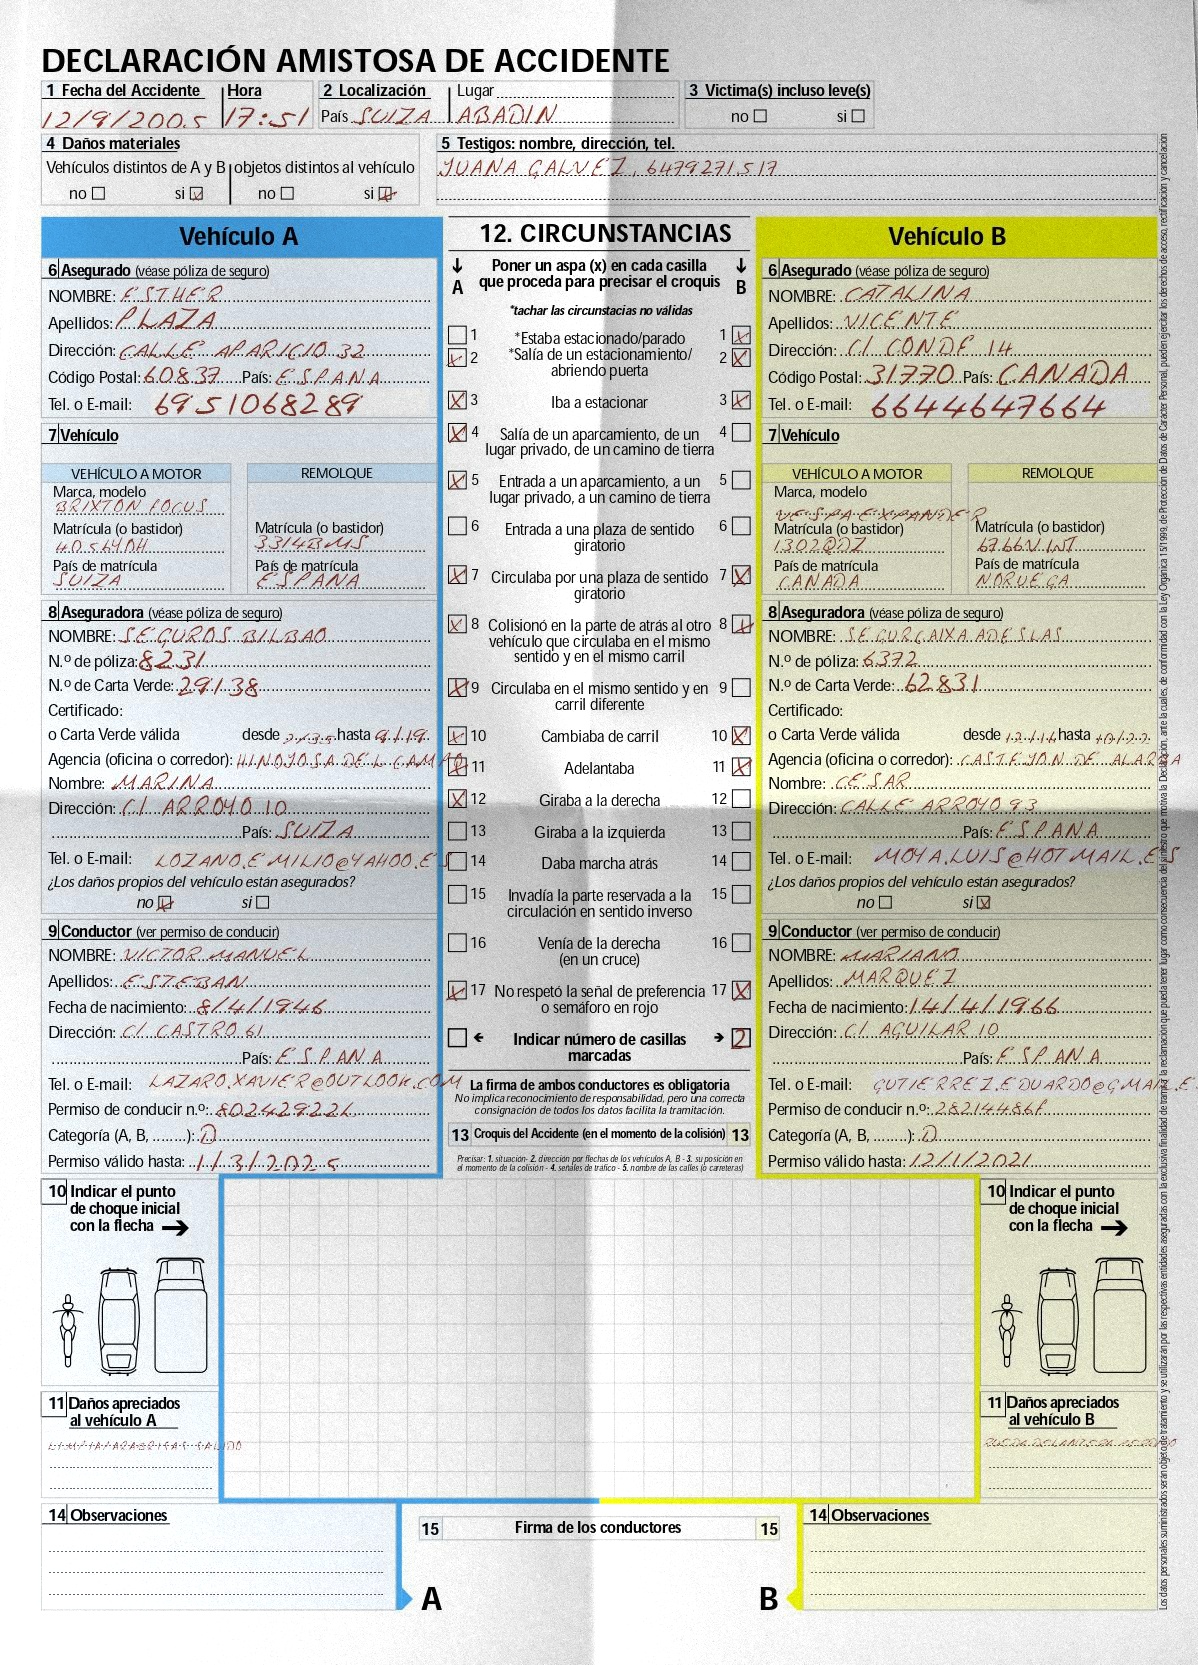 DECLARACIÓN AMISTOSA DE ACCIDENTE
1 Fecha del Accidente Hora 2 Localización Lugar 3 Victima(s) incluso leve(s)
12/9/2005 17:51 País SUIZA ABADIN no si
4 Daños materiales 5 Testigos: nombre, dirección, tel.
Vehículos distintos de A y B objetos distintos al vehículo JUANA GALVEZ, 6479271517
no si no si
Vehículo A
6 Asegurado (véase póliza de seguro)
NOMBRE: ESTHER
Apellidos: PLAZA
Dirección: CALLE APARICIO 32
Código Postal: 60837 País: ESPANA
Tel. o E-mail: 6951068289
7 Vehículo
VEHÍCULO A MOTOR REMOLQUE
Marca, modelo
BRIXTON FOCUS
Matrícula (o bastidor) Matrícula (o bastidor)
4056YDH 3314BMS
País de matrícula País de matrícula
SUIZA ESPANA
8 Aseguradora (véase póliza de seguro)
NOMBRE: SEGUROS BILBAO
N.º de póliza: 8231
N.º de Carta Verde: 29138
Certificado:
o Carta Verde válida desde hasta
Agencia (oficina o corredor): HINOJOSA DEL CAMPO
Nombre: MARINA
Dirección: C/ ARROYO 10
País: SUIZA
Tel. o E-mail: LOZANO.EMILIO@YAHOO.ES
¿Los daños propios del vehículo están asegurados?
no si
9 Conductor (ver permiso de conducir)
NOMBRE: VICTOR MANUEL
Apellidos: ESTEBAN
Fecha de nacimiento: 8/4/1946
Dirección: C/ CASTRO 61
País: ESPANA
Tel. o E-mail: LAZARO.XAVIER@OUTLOOK.COM
Permiso de conducir n.º: 80242922L
Categoría (A, B, ........): D
Permiso válido hasta: 1/3/2025
12. CIRCUNSTANCIAS
A Poner un aspa (x) en cada casilla B
que proceda para precisar el croquis
*tachar las circunstacias no válidas
1 *Estaba estacionado/parado 1
2 *Salía de un estacionamiento/ 2
abriendo puerta
3 Iba a estacionar 3
4 Salía de un aparcamiento, de un 4
lugar privado, de un camino de tierra
5 Entrada a un aparcamiento, a un 5
lugar privado, a un camino de tierra
6 Entrada a una plaza de sentido 6
giratorio
7 Circulaba por una plaza de sentido 7
giratorio
8 Colisionó en la parte de atrás al otro 8
vehículo que circulaba en el mismo
sentido y en el mismo carril
9 Circulaba en el mismo sentido y en 9
carril diferente
10 Cambiaba de carril 10
11 Adelantaba 11
12 Giraba a la derecha 12
13 Giraba a la izquierda 13
14 Daba marcha atrás 14
15 Invadía la parte reservada a la 15
circulación en sentido inverso
16 Venía de la derecha 16
(en un cruce)
17 No respetó la señal de preferencia 17
o semáforo en rojo
Indicar número de casillas 2
marcadas
La firma de ambos conductores es obligatoria
No implica reconocimiento de responsabilidad, pero una correcta
consignación de todos los datos facilita la tramitación.
13 Croquis del Accidente (en el momento de la colisión) 13
Precisar: 1. situación- 2. dirección por flechas de los vehículos A, B - 3. su posición en
el momento de la colisión - 4. señales de tráfico - 5. nombre de las calles (o carreteras)
Vehículo B
6 Asegurado (véase póliza de seguro)
NOMBRE: CATALINA
Apellidos: VICENTE
Dirección: C/ CONDE 14
Código Postal: 31770 País: CANADA
Tel. o E-mail: 6644647664
7 Vehículo
VEHÍCULO A MOTOR REMOLQUE
Marca, modelo
VESPA EXPANDER
Matrícula (o bastidor) Matrícula (o bastidor)
1302QDZ
País de matrícula País de matrícula
CANADA NORUEGA
8 Aseguradora (véase póliza de seguro)
NOMBRE: SEGURCAIXA ADESLAS
N.º de póliza: 6372
N.º de Carta Verde: 62831
Certificado:
o Carta Verde válida desde 12.1.14 hasta 10.1.22
Agencia (oficina o corredor): CASTEJON DE ALARBA
Nombre: CESAR
Dirección: CALLE ARROYO 93
País: ESPANA
Tel. o E-mail: MOYA.LUIS@HOTMAIL.ES
¿Los daños propios del vehículo están asegurados?
no si
9 Conductor (ver permiso de conducir)
NOMBRE: MARIANO
Apellidos: MARQUEZ
Fecha de nacimiento: 14/4/1966
Dirección: C/ AGUILAR 10
País: ESPANA
Tel. o E-mail: GUTIERREZ.EDUARDO@GMAIL.E
Permiso de conducir n.º: 28214486F
Categoría (A, B, ........): D
Permiso válido hasta: 12/1/2021
10 Indicar el punto
de choque inicial
con la flecha
11 Daños apreciados
al vehículo A
LIMPIAPARABRISAS SALIDO
10 Indicar el punto
de choque inicial
con la flecha
11 Daños apreciados
al vehículo B
RUEDA DELANTERA
14 Observaciones
15 Firma de los conductores 15
A B
14 Observaciones
Los datos personales suministrados serán objeto de tratamiento y se utilizarán por las respectivas entidades aseguradas con la exclusiva finalidad de tramitar la reclamación que pueda tener lugar como consecuencia del siniestro que motiva la Declaración, ante la cuales, de conformidad con la Ley Orgánica 15/1999, de Protección de Datos de Carácter Personal, pueden ejercitar los derechos de acceso, rectificación y cancelación